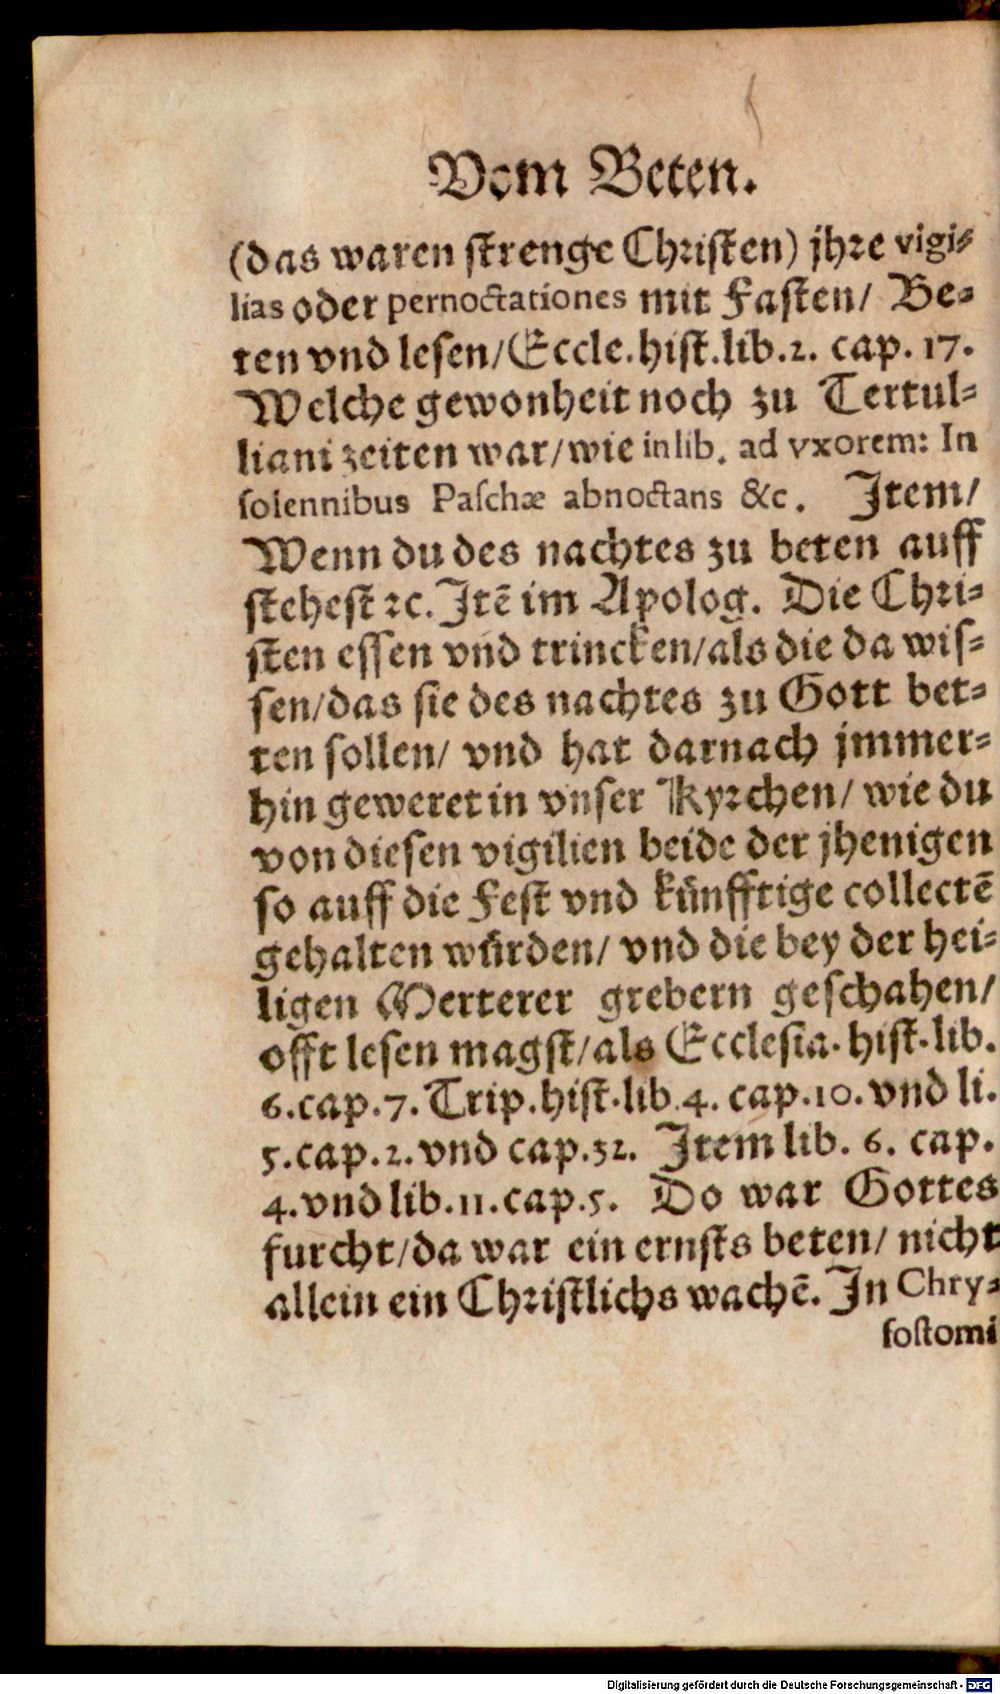 Vom Beten.
(das waren strenge Christen) jhre vigi-
lias oder pernoctationes mit Fasten/ Be-
ten vnd lesen/Eccle.hist.lib.2. cap. 17.
Welche gewonheit noch zu Tertul-
liani zeiten war/wie in lib. ad vxorem: In
solennibus Paschæ abnoctans &c. Jtem/
Wenn du des nachtes zu beten auff
stehest ꝛc. Jtē im Apolog. Die Chri-
sten essen vnd trincken/als die da wis-
sen/das sie des nachtes zu Gott bet-
ten sollen/ vnd hat darnach jmmer-
hin geweret in vnser Kyrchen/ wie du
von diesen vigilien beide der jhenigen
so auff die Fest vnd künfftige collectē
gehalten würden/ vnd die bey der hei-
ligen Merterer grebern geschahen/
offt lesen magst/als Ecclesia.hist.lib.
6.cap.7.Trip.hist.lib.4. cap.10.vnd li.
5.cap.2.vnd cap.32. Jtem lib. 6. cap.
4.vnd lib.11.cap.5. Do war Gottes
furcht/da war ein ernsts beten/ nicht
allein ein Christlichs wachē. Jn Chry-
sostomi
Digitalisierung gefördert durch die Deutsche Forschungsgemeinschaft - DFG